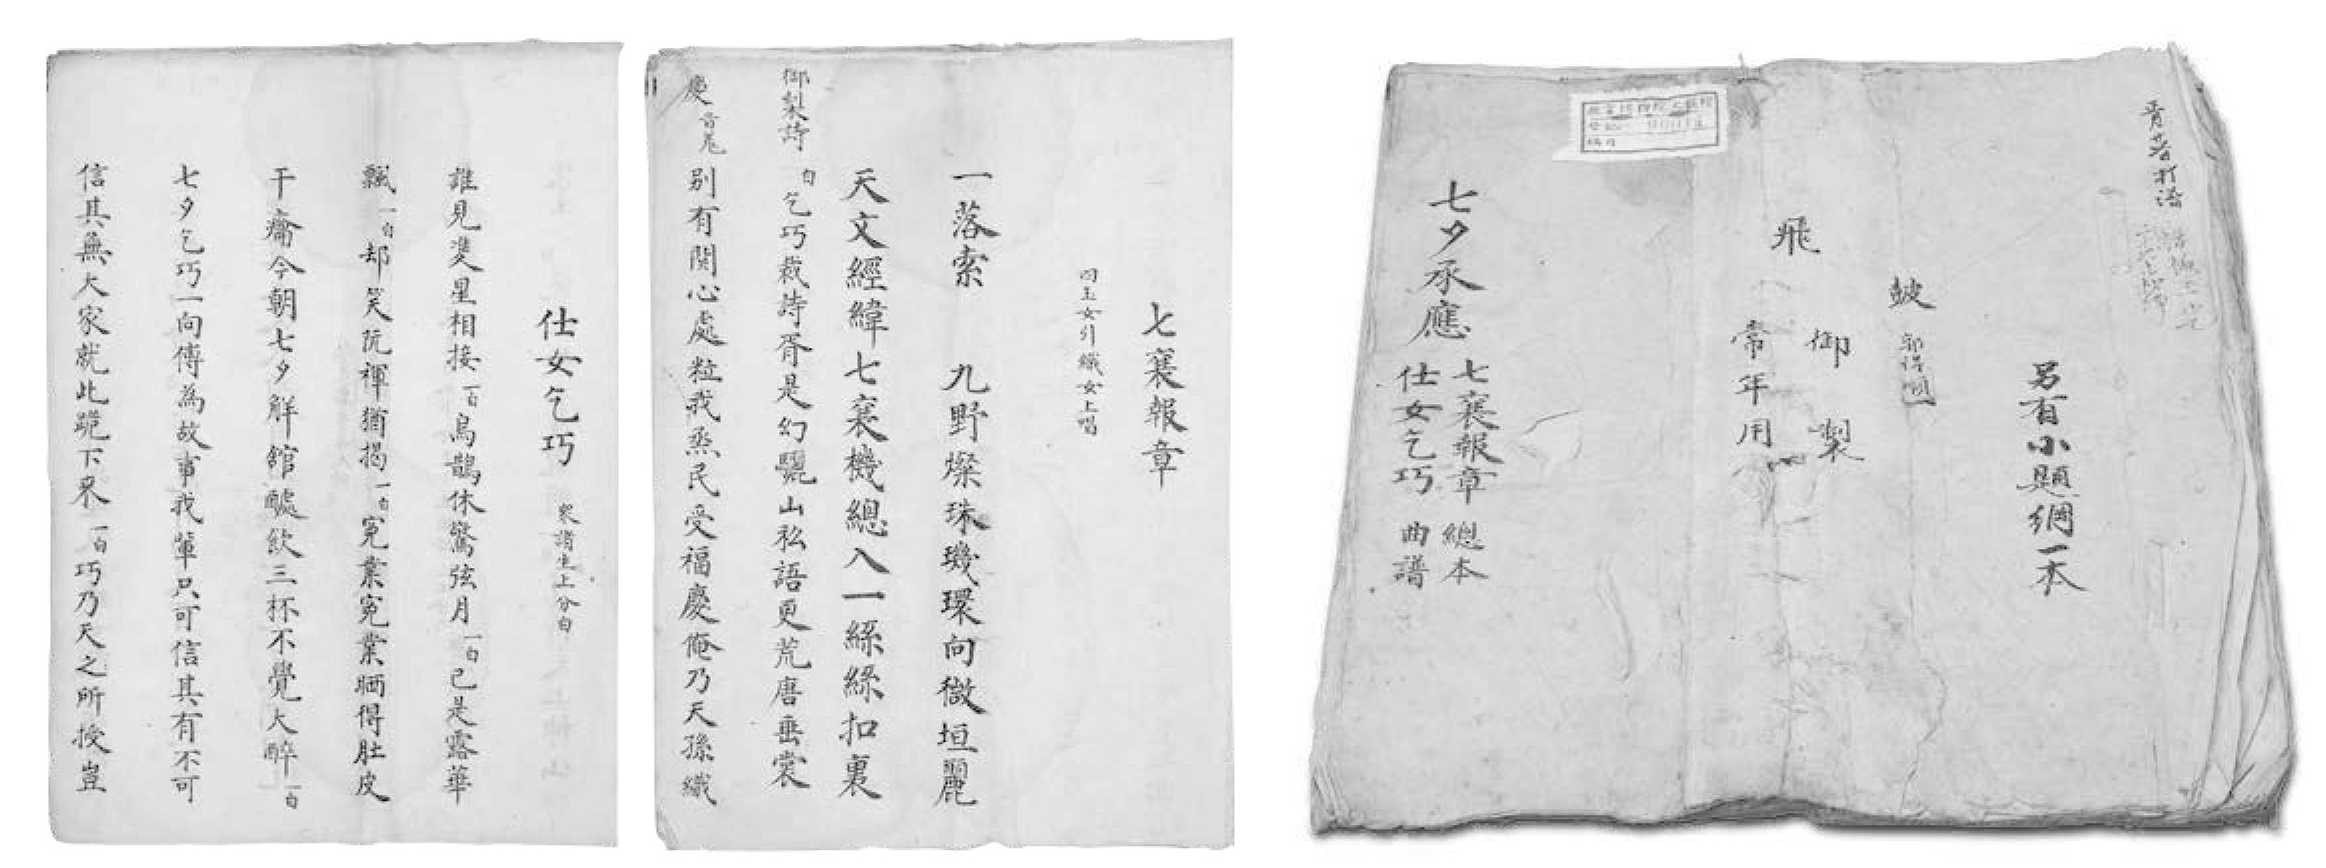 仕女乞巧 衆諸生上分白
誰見雙星相接 一白 烏鵲休驚弦月 一白 已是露華
飄 一白 却笑阮褌猶揭 一白 寃業寃業晒得肚皮
干癟今朝七夕觧舘醵飲三杯不覺大醉 一白
七夕乞巧一向傳為故事我輩只可信其有不可
信其無大家就此跪下来 一白 巧乃天之所授豈
七襄報章
四玉女引織女上唱
一落索 九野燦珠璣環向微垣麗
天文經緯七襄機總入一絲絲扣裏
御製詩 白 乞巧裁詩胥是幻驪山私語更荒唐垂裳
別有関心處粒我烝民受福慶俺乃天孫織
七夕承應
七襄報章 總本
仕女乞巧 曲譜
飛
御製
常年用
皷
另有小題綱一本